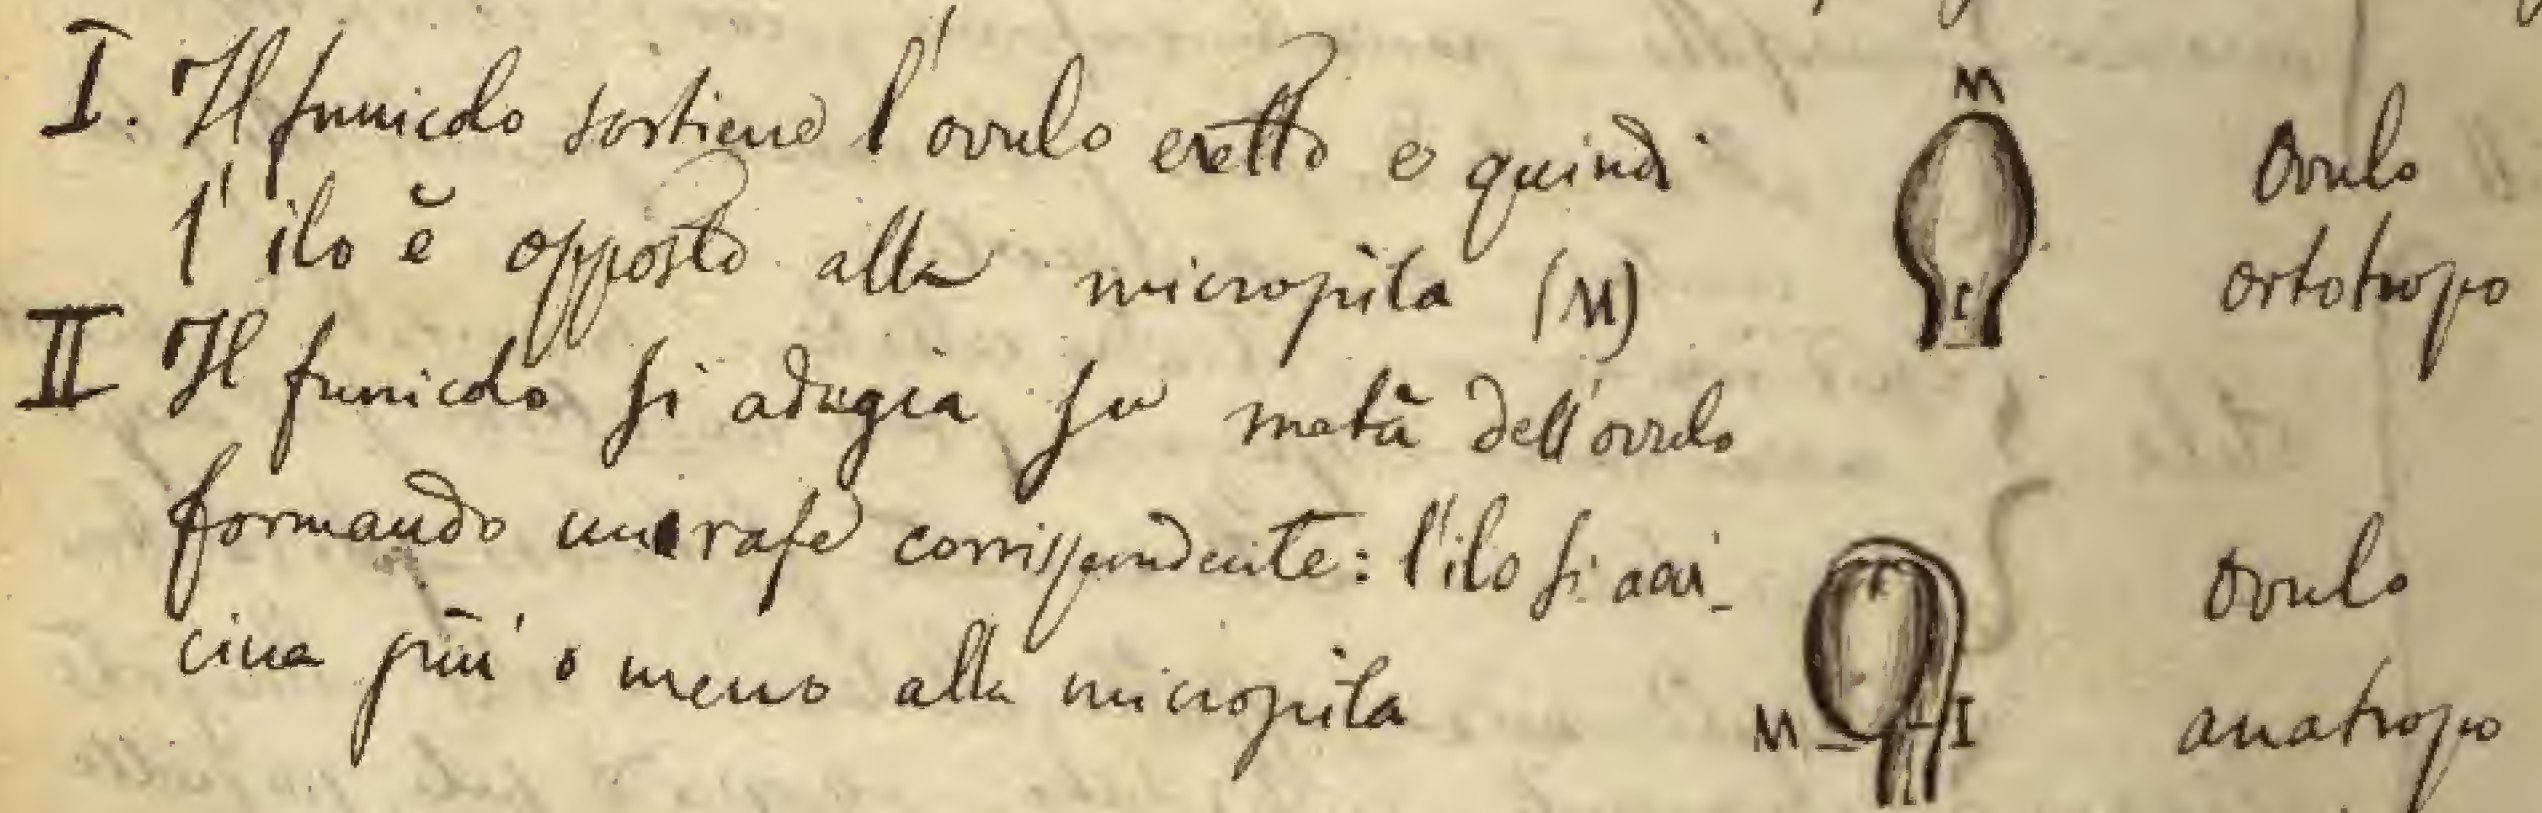 I. Il funicolo sostiene l'ovulo eretto e quindi
l'ilo è opposto alla micropila (M)
II Il funicolo si adagia su metà dell'ovulo
formando un rafe corrispondente: l'ilo si avvi-
cina più o meno alla micropila
M
I
Ovulo
ortotropo
M
I
Ovulo
anatropo